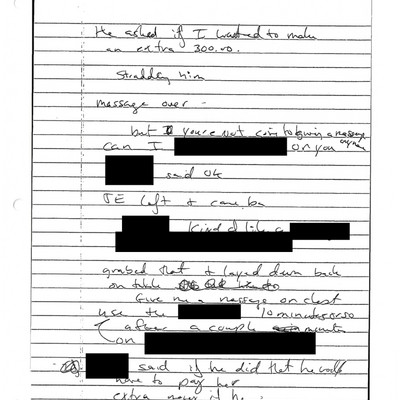 He asked if I wanted to make
an extra 300.00.
Stradding him
message over -
but I you're not going to giving a message anymore
can I on you
said ok
JE left + came ba
kind of like a
grabed that + layed down back
on table
Give me a message on chest
use the 10 minutes or so
after a couple minutes
on
said if he did that he would
have to pay her
extra now if he